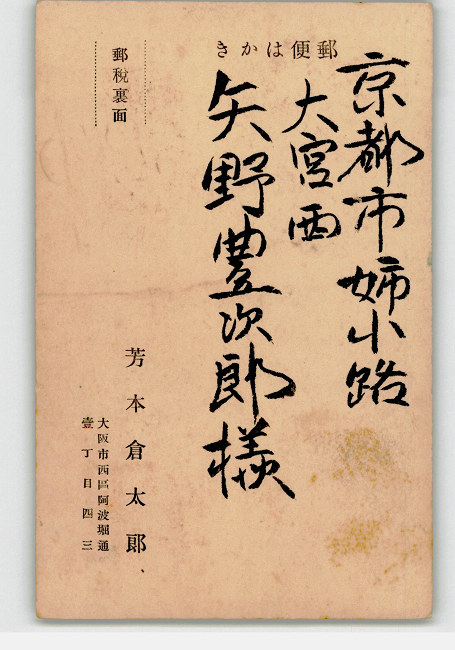 郵便はかき
京都市姉小路
大宮西
矢野豊次郎様
郵税裏面
芳本倉太郎
大阪市西區阿波堀通
壹丁目四三